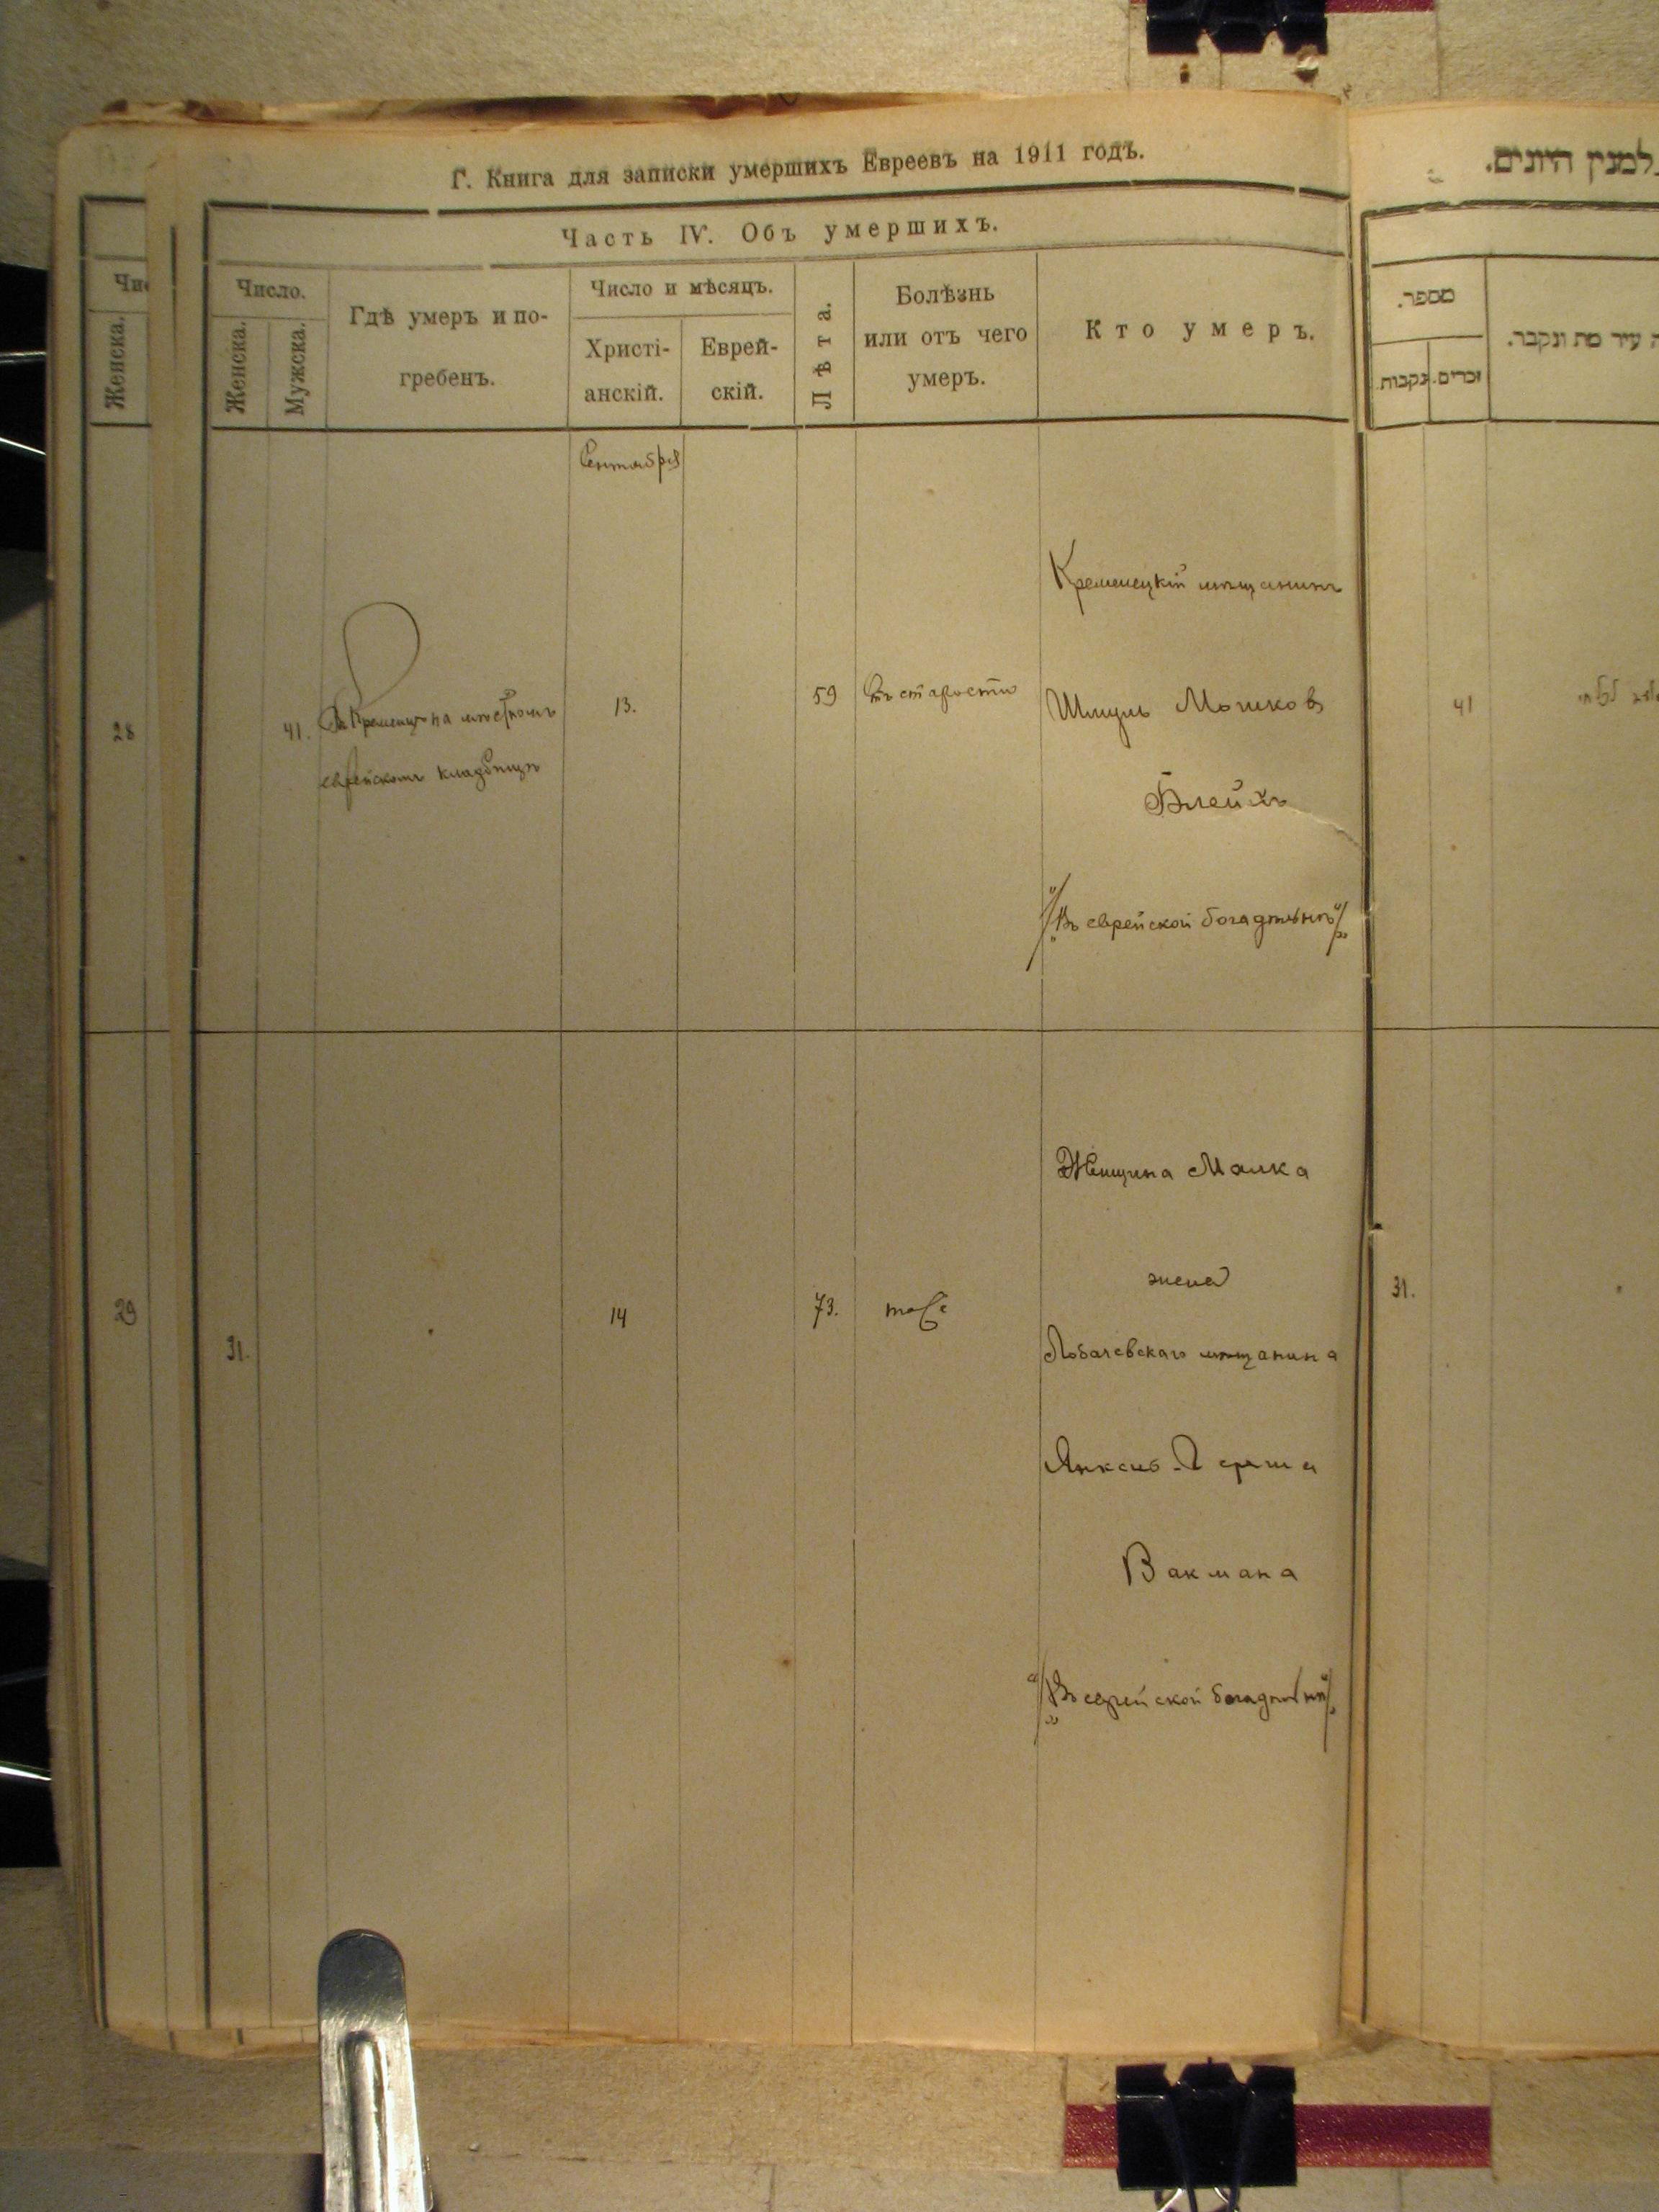 Г. Книга для записки умершихъ Евреевъ на 1911 годъ.
Часть IV. Объ умершихъ.
Число.
Женска.
Мужска.
Гдѣ умеръ и по-
гребенъ.
Число и мѣсяцъ.
Христі-
анскій.
Еврей-
скій.
Лѣта.
Болѣзнь
или отъ чего
умеръ.
Кто умеръ.
Женска.
28
29
Сентября
41.
Въ Кременцѣ на мѣстномъ
еврейскомъ кладбищѣ
13.
59
Отъ старости
Кременецкій мѣщанинъ
Шмуль Мошков
Блейхъ
"/Въ еврейской богадѣльнѣ/"
31.
14
73.
тоже
Женщина Малка
жена
Лобачевскаго мѣщанина
Янкель-Герша
Вакмана
"/Въ еврейской богадѣльнѣ/"
למנין היונים.
מספר.
זכרים.
נקבות.
עיר מת ונקבר.
41
31.